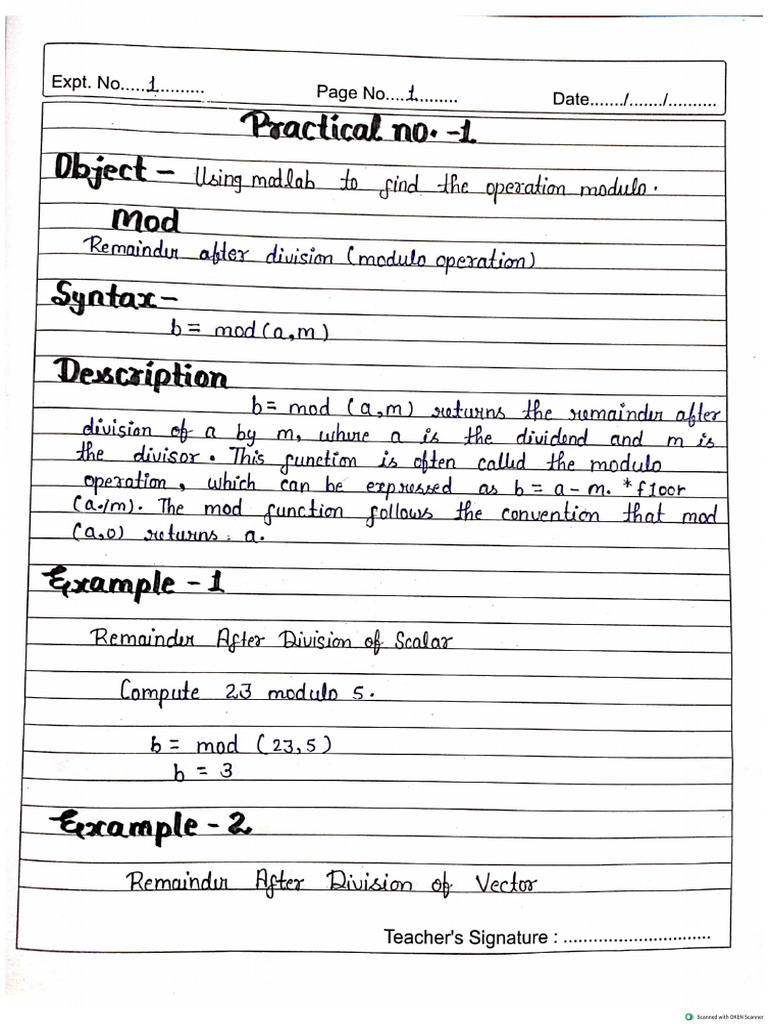 Expt. No.....1.........
Page No....1........
Date......./......./...........
Practical no. -1
Object - Using matlab to find the operation modulo.
Mod
Remainder after division (modulo operation)
Syntax -
b = mod (a,m)
Description
b = mod (a,m) returns the remainder after
division of a by m, where a is the dividend and m is
the divisor. This function is often called the modulo
operation, which can be expressed as b = a - m. *floor
(a./m). The mod function follows the convention that mod
(a,0) returns a.
Example - 1
Remainder After Division of Scalar
Compute 23 modulo 5.
b = mod (23,5)
b = 3
Example - 2
Remainder After Division of Vector
Teacher's Signature : ..............................
Scanned with OKEN Scanner